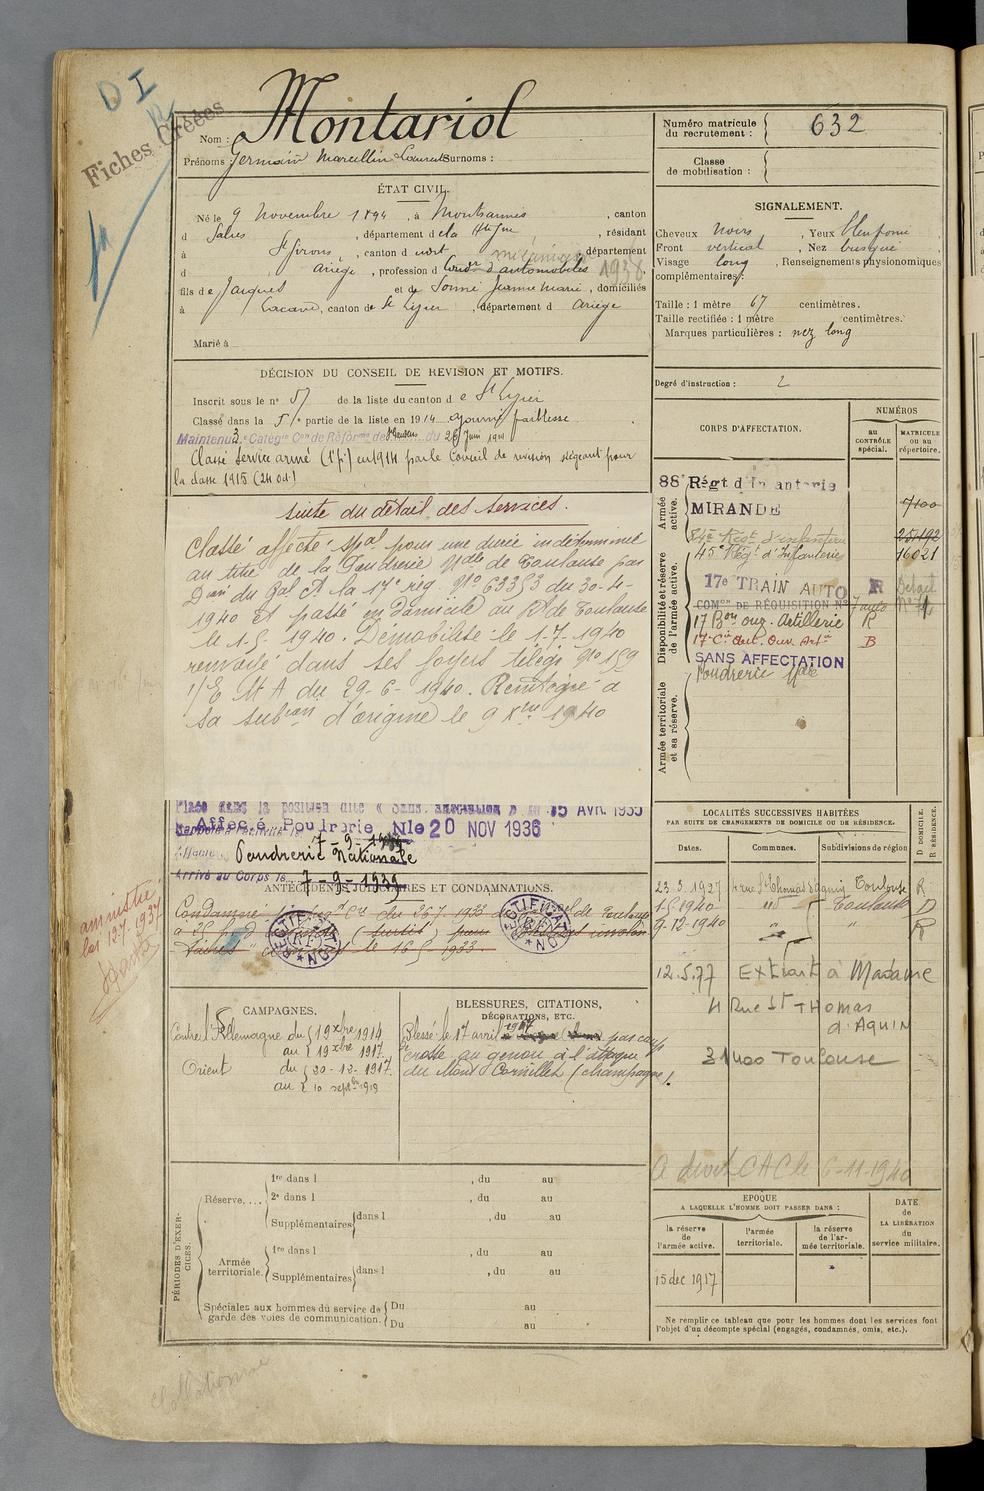 D I
Fiches Créées
Nom : Montariol
Prénoms : Germain Marcellin Laurent Surnoms :
Numéro matricule du recrutement : 632
Classe de mobilisation :
ÉTAT CIVIL.
Né le 9 Novembre 1894, à Montsaunès, canton
d Salies, département de la Hte Gne, résidant
à St Girons, canton d udit mécanicien département
d Ariège, profession d d'automobiles 1938,
fils de Jacques et de Jeanne Marie, domiciliés
à Lacave, canton de St Lizier, département d Ariège
Marié à
SIGNALEMENT.
Cheveux Noirs, Yeux
Front vertical, Nez busqué
Visage long, Renseignements physionomiques
complémentaires :
Taille : 1 mètre 67 centimètres.
Taille rectifiée : 1 mètre centimètres.
Marques particulières : nez long
Degré d'instruction : 2
DÉCISION DU CONSEIL DE REVISION ET MOTIFS.
Inscrit sous le n° 51 de la liste du canton de St Lizier
Classé dans la 5e partie de la liste en 1914 ajourné faiblesse
Maintenu 3 Catégie Con de Réforme de St Gaudens du 26 Juin 19
Classé Service armé (1e p) en 1914 par le Conseil de revision siégeant pour
la classe 1915 (24 Od.)
Suite du détail des services.
Classé affecté spal pour une durée indéterminée
au titre de la Poudrerie Nale de Toulouse par
Don du Gal Ct la 17e rég. No 63353 du 30-4-
1940 et passé en Domicile au Rt de Toulouse
le 1-5-1940. Démobilisé le 1-7-1940
renvoyé dans ses foyers télég. No 159
1/E M A du 29-6-1940. Réintégré à
sa subion d'origine le 9 Xbre 1940
Placé dans la position dite « Sans affectation » le 15 AVR 1935
Affecté Poudrerie Nle 20 NOV 1936
Rappelé à l'activité le 7-9-1939
Poudrerie Nationale
Arrivé au Corps le 7-9-1939
CORPS D'AFFECTATION.
NUMÉROS
au CONTRÔLE spécial.
MATRICULE ou au répertoire.
Armée active.
88e Régt d'Infanterie
MIRANDE
7100
Disponibilité et réserve de l'armée active.
Régt d'infanterie 25192
45e Régt d'Infanterie 16021
17e TRAIN AUTO R
COMon DE RÉQUISITION No 7 auto
17 Bon ouv. Artillerie R
17e Cie Aut. Ouv. Artie B
SANS AFFECTATION
Poudrerie Nale
Armée territoriale et sa réserve.
ANTÉCÉDENTS JUDICIAIRES ET CONDAMNATIONS.
Condamné du 26 7 1933 de Toulouse
le 16 5 1933
RECTIFICATION
RECTIFICATION
amnistié
loi 12-7-1937
LOCALITÉS SUCCESSIVES HABITÉES
PAR SUITE DE CHANGEMENTS DE DOMICILE OU DE RÉSIDENCE.
Dates. Communes. Subdivisions de région
D DOMICILE. R RÉSIDENCE.
23.3.1927 4 rue St Thomas d'Aquin Toulouse R
1-5-1940 Toulouse D
9-12-1940 " R
12.5.77 Extrait à Madame
4 Rue St THomas
d'Aquin
31400 Toulouse
A droit CAC le 6-11-1940
CAMPAGNES.
Contre l'Allemagne du 19 Xbre 1914
au 19 Xbre 1917
Orient du 20-12-1917
au 10 septbre 1919
BLESSURES, CITATIONS, DÉCORATIONS, ETC.
Blessé le 17 avril 1917 par coup
de crosse au genou à l'attaque
du Mont Cornillet (Champagne).
PÉRIODES D'EXERCICES.
Réserve....
1re dans l , du au
2e dans l , du au
Supplémentaires dans l , du au
Armée territoriale.
1re dans l , du au
Supplémentaires dans l , du au
Spéciales aux hommes du service de garde des voies de communication.
Du au
Du au
EPOQUE
A LAQUELLE L'HOMME DOIT PASSER DANS :
la réserve de l'armée active.
l'armée territoriale.
la réserve de l'armée territoriale.
DATE de LA LIBÉRATION du service militaire.
15 dec 1917
Ne remplir ce tableau que pour les hommes dont les services font
l'objet d'un décompte spécial (engagés, condamnés, omis, etc.).